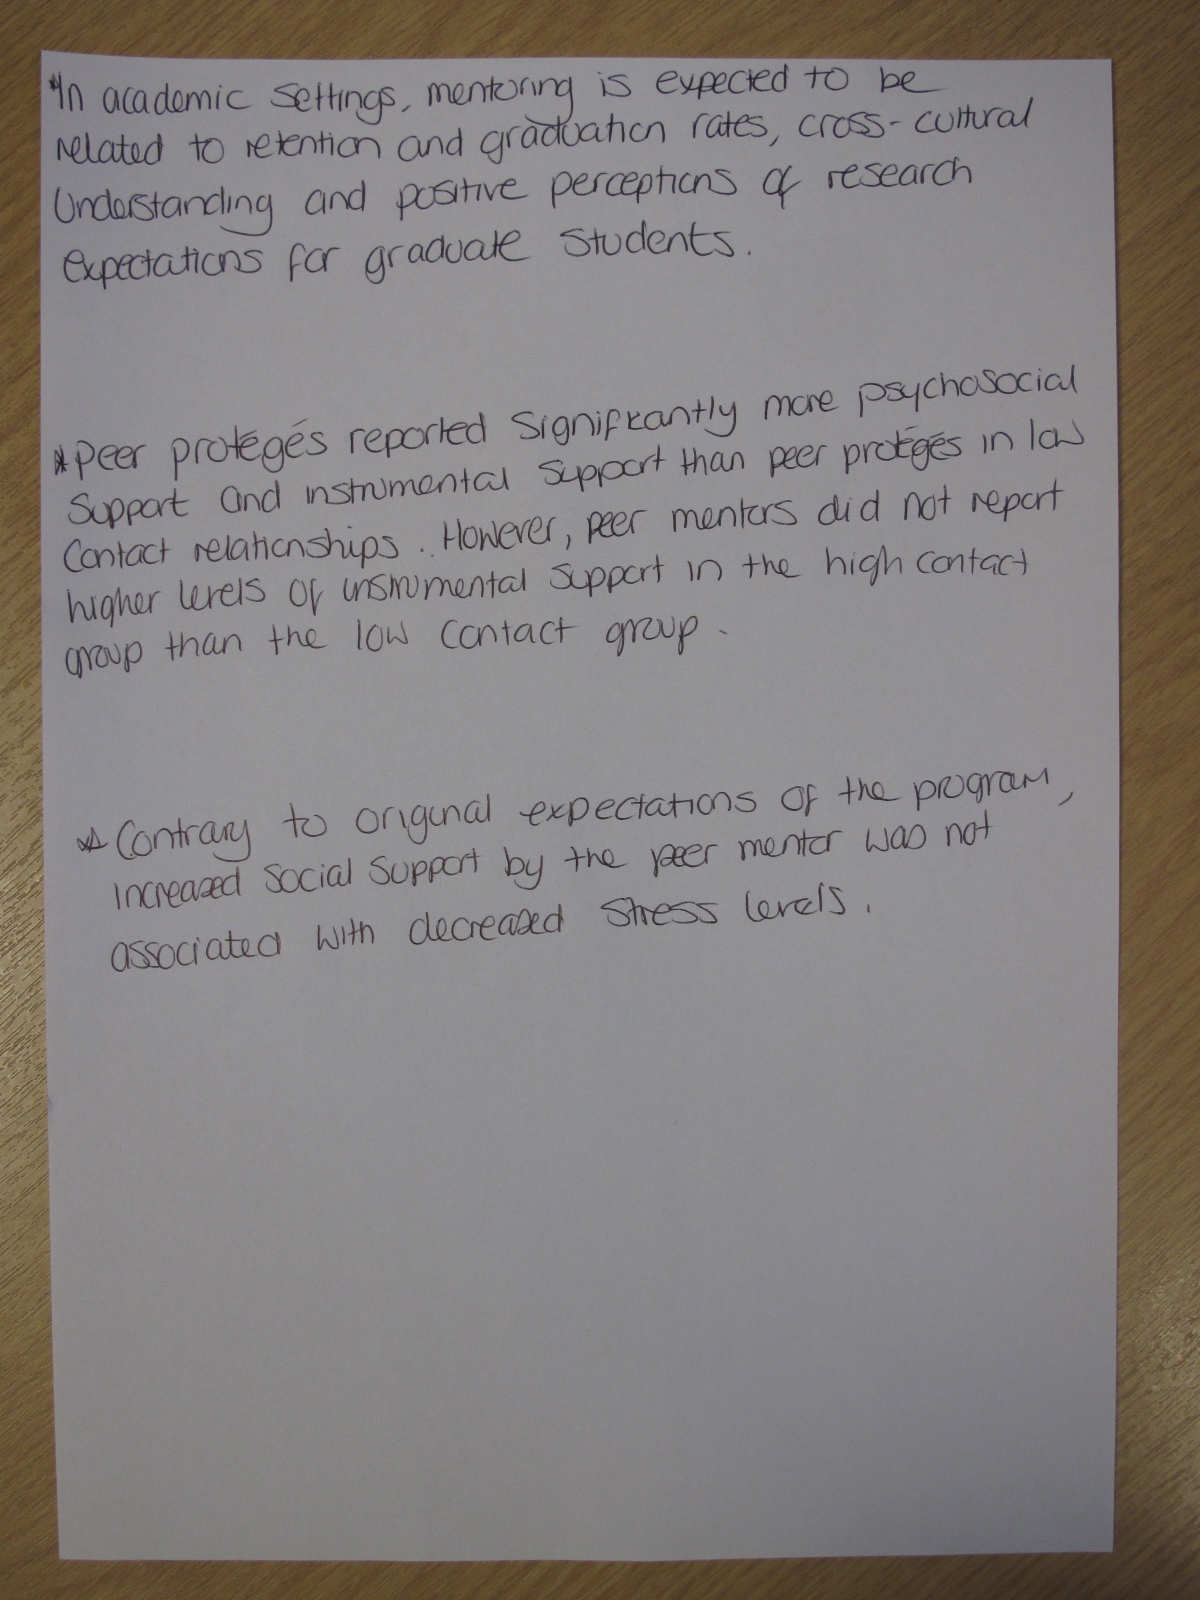 *In academic settings, mentoring is expected to be
related to retention and graduation rates, cross-cultural
Understanding and positive perceptions of research
expectations for graduate students.
*Peer protégés reported significantly more psychosocial
support and instrumental support than peer protégés in low
contact relationships. However, peer mentors did not report
higher levels of instrumental support in the high contact
group than the low contact group.
* Contrary to original expectations of the program,
increased social support by the peer mentor was not
associated with decreased stress levels.